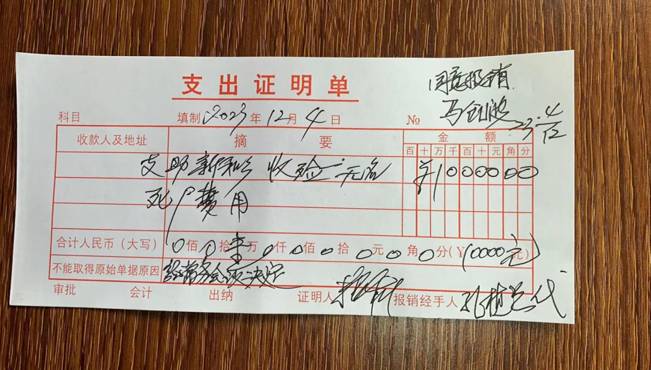 同意报销
支出证明单
马
23.4/12
科目 填制 2023年12月4日 №
收款人及地址 摘要 金额
百十万千百十元角分
支助新和 收殓一无名 ¥1000000
死尸费用
合计人民币（大写） 0佰0拾壹万0仟0佰0拾0元0角0分（¥10000元）
不能取得原始单据原因 会议决定
审批 会计 出纳 证明人 报销经手人 代